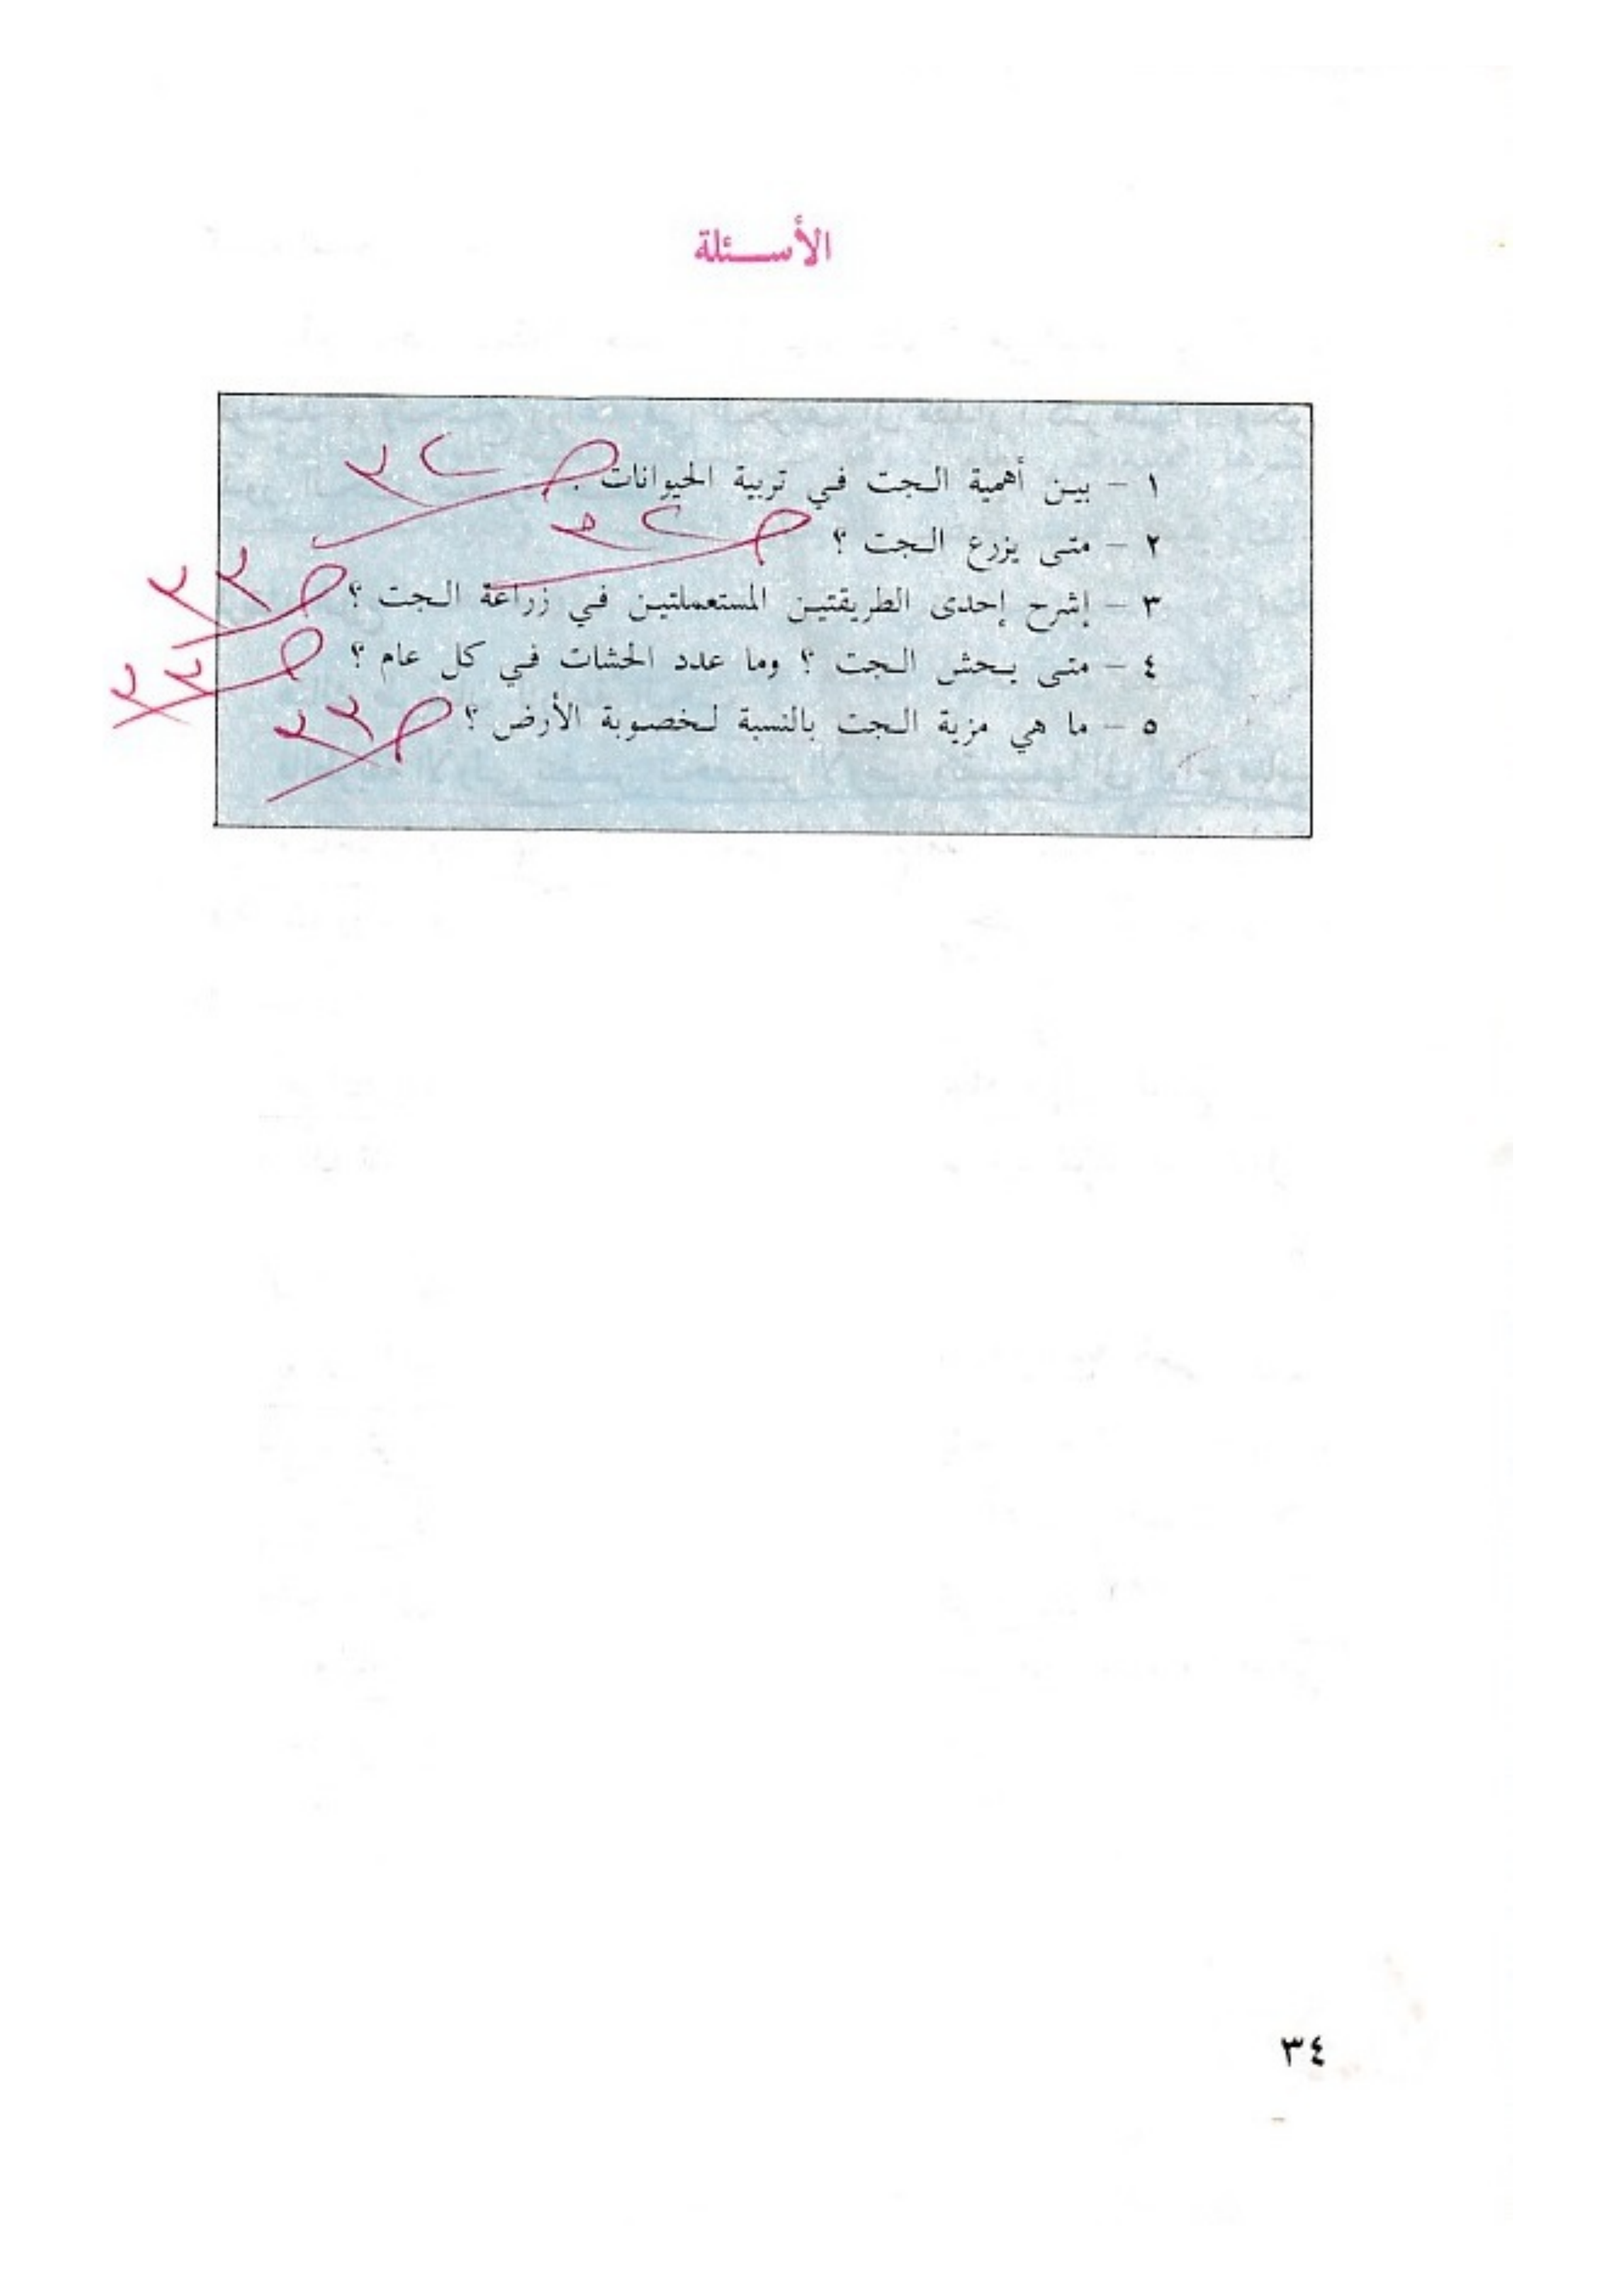 الأسئلة
١ – بين أهمية الجت في تربية الحيوانات . ص
٢ – متى يزرع الجت ؟ ص
٣ – إشرح إحدى الطريقتين المستعملتين في زراعة الجت ؟ ص
٤ – متى يحش الجت ؟ وما عدد الحشات في كل عام ؟ ص
٥ – ما هي مزية الجت بالنسبة لخصوبة الأرض ؟ ص ٣٣
٣٤